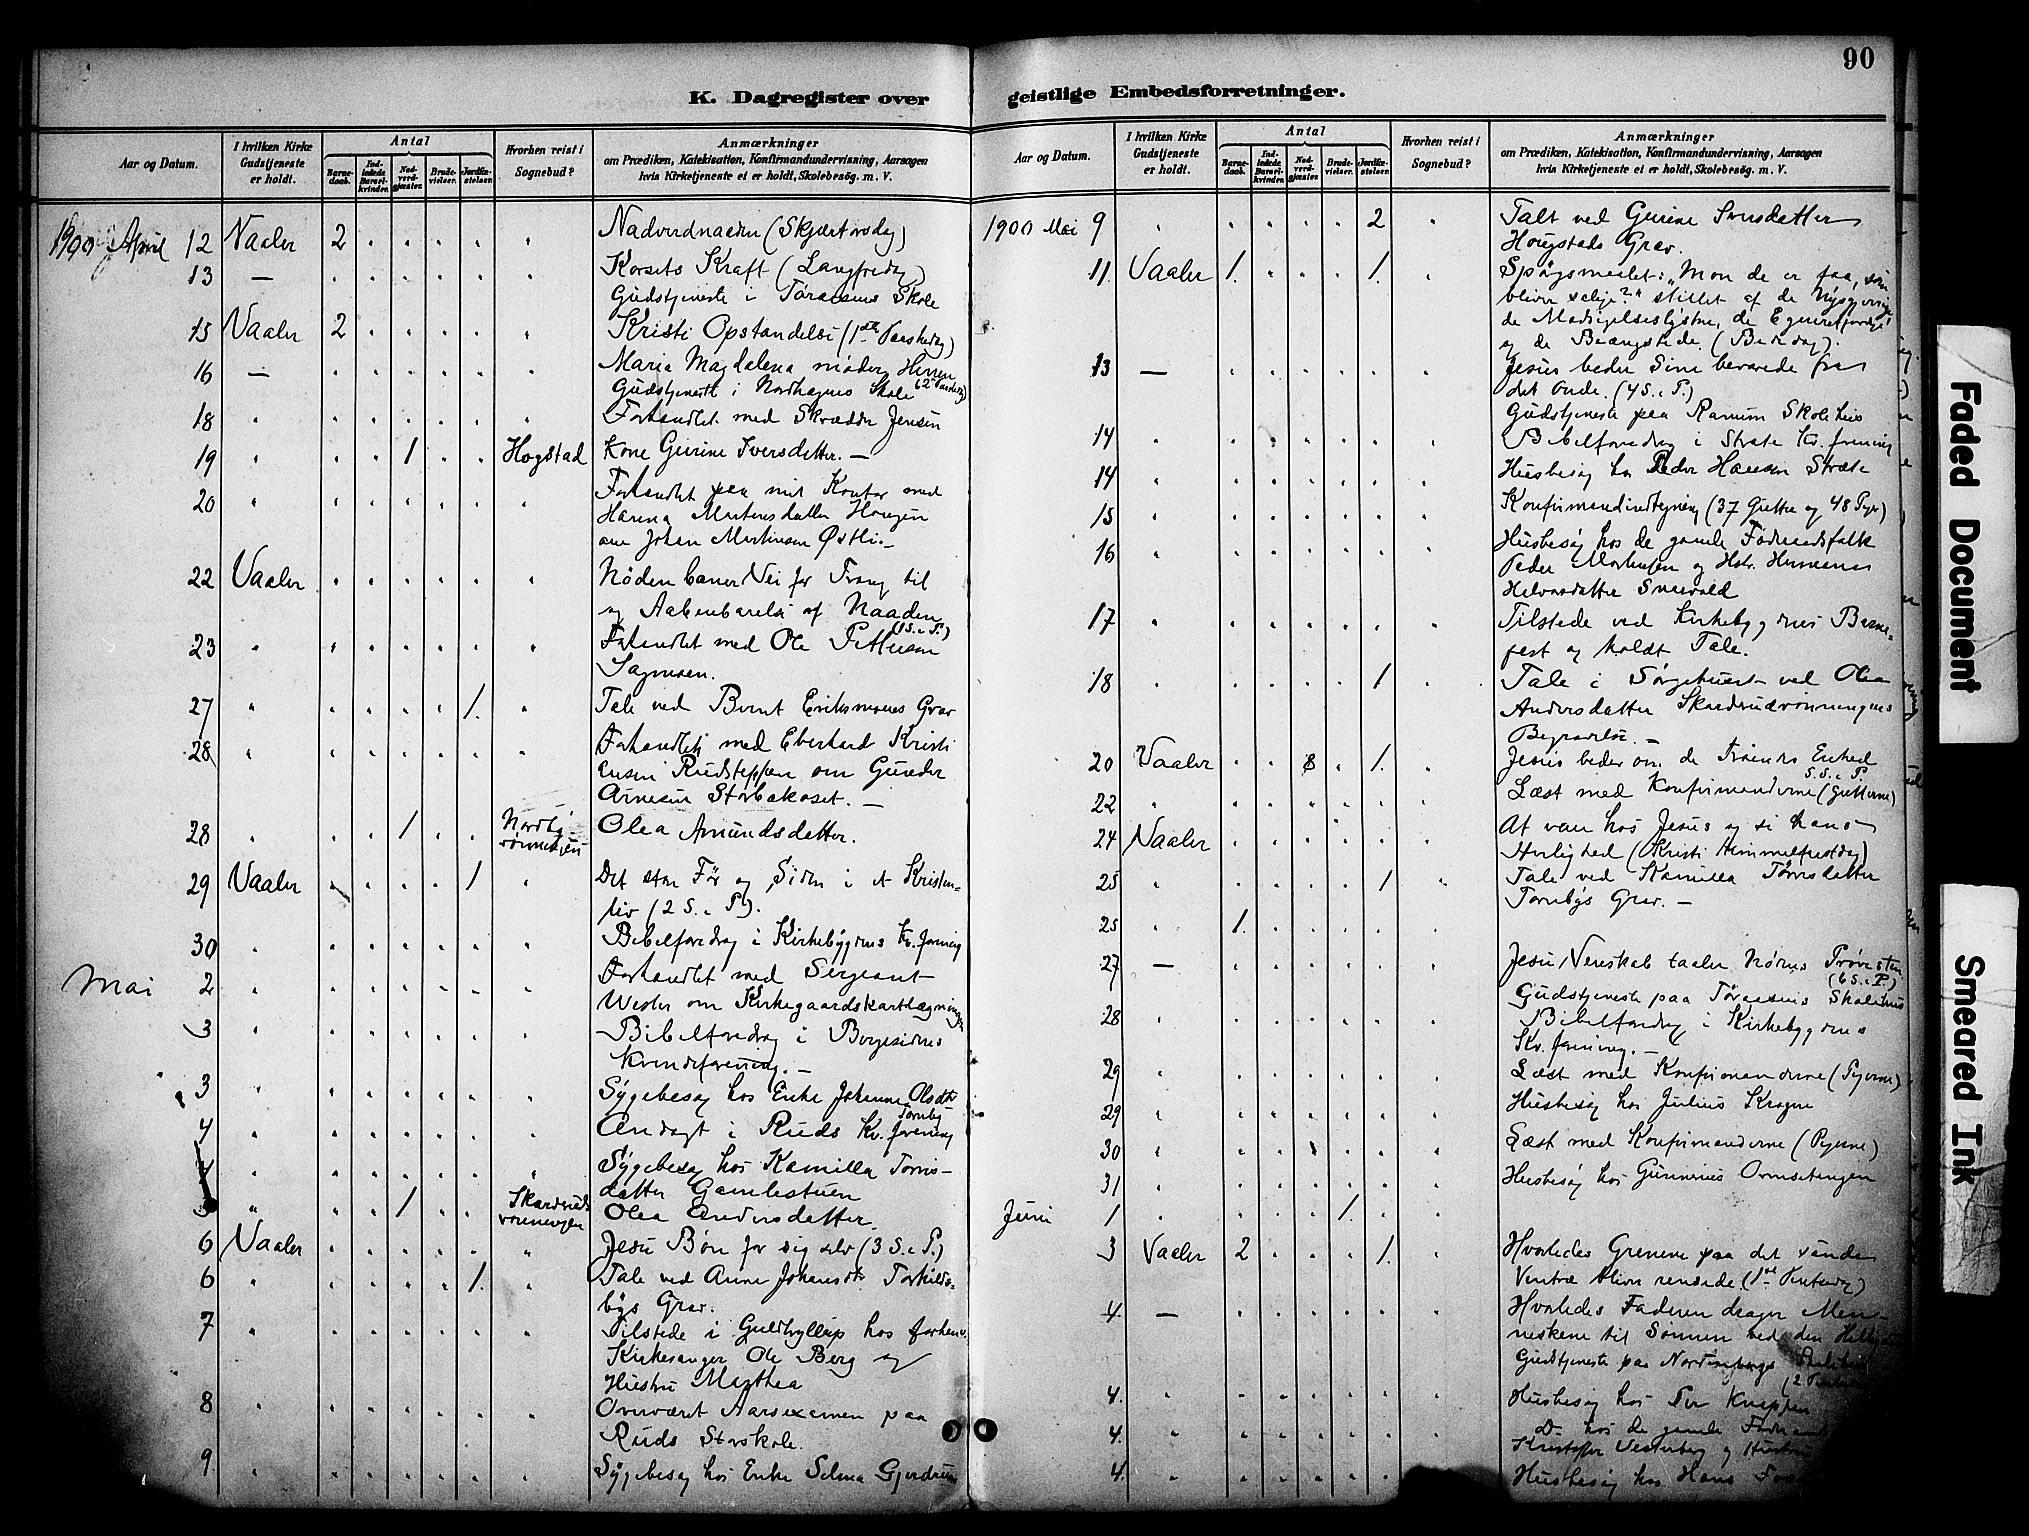 90
K. Dagregister over geistlige Embedsforretninger.
Aar og Datum.
I hvilken Kirke Gudstjeneste er holdt.
Antal
Barnedaab.
Indledede Barselkvinder.
Nadverdgjæster.
Brudevielser.
Jordfæstelser.
Hvorhen reist i Sognebud?
Anmærkninger
om Prædiken, Katekisation, Konfirmandundervisning, Aarsagen
hvis Kirketjeneste ei er holdt, Skolebesøg. m. V.
1900 April 12 Vaaler 2 Nadverdnaaden (Skjærtorsdag)
13 — Korsets Kraft (Langfredag)
Gudstjeneste i Skole
15 Vaaler 2 Kristi Opstandelse (1ste Paaskedag)
16 — Maria Magdalena møder Herren
Gudstjeneste i Nordhagens Skole (2 Paaskedag)
18 Forhandlet med Skrædder Jensen
19 1 Hogstad Kone Gurine Iversdatter. —
20 Forhandlet paa mit Kontor med
Martinsdatter Haugen
om Johan Martinsen Østli. —
22 Vaaler Nøden baner Vei for Trang til
og Aabenbarelse af Naaden
(1 S. e. P.)
23 Forhandlet med Ole Pettersen
Sagmoen.
27 1. Tale ved Bernt Eriksmoens Grav
28 Forhandlet med Eberhard Kristi
ensen Rudsteppen om Gunder
Arnesen Storbakaset. —
28 1 Nordby-
Olea Amundsdatter.
29 Vaaler 1 Det store Før og Siden i et Kristen-
liv (2 S. e. P).
30 Bibelforedrag i Kirkebygdens Kv. forening
Mai 2 Forhandlet med Sergeant
Wester om Kirkegaardskartlægningen
3 Bibelforedrag i Bergesidens
Kvindeforening. —
3 Sygebesøg hos Enke Johanne Olsdtr
Tornby
4 Andagt i Ruds Kv. forening
4 Sygebesøg hos Kamilla Torris-
datter Gamlestuen
5 1 Skardruds
Olea Andersdatter.
6 Vaaler Jesu Bøn for sig selv (3 S. e. P.)
6 1. Tale ved Anne Johansdtr Torkilds-
bys Grav.
7 Tilstede i Guldbryllup hos forhenv.
Kirkesanger Ole Berg og
Hustru Marthea
8 Overværet Aarsexamen paa
Ruds Storskole.
9 Sygebesøg hos Enke Selma Gjerdrum
Aar og Datum.
I hvilken Kirke Gudstjeneste er holdt.
Antal
Barnedaab.
Indledede Barselkvinder.
Nadverdgjæster.
Brudevielser.
Jordfæstelser.
Hvorhen reist i Sognebud?
Anmærkninger
om Prædiken, Katekisation, Konfirmandundervisning, Aarsagen
hvis Kirketjeneste ei er holdt, Skolebesøg. m. V.
1900 Mai 9 2 Talt ved Gurine
Hougstads Grav.
11. Vaaler 1. 1. Spørgsmaalet: "Mon de er faa, som
bliver salige?" stillet af de Nysgjerrige,
de Modsigelseslystne, de Egenretfærdige
og de Beængstede. (Bededag).
13 — Jesus beder Sine bevarede fra
det Onde. (4 S. e. P.)
Gudstjeneste paa Ranum Skolehus
14 Bibelforedrag i Stræte Kv. forening
14 Husbesøg hos Peder Hansen Stræte
15 Konfirmandindtegning (37 Gutter og 48 Pger)
16 Husbesøg hos de gamle Føderaadsfolk
Peder og Hstr.
17 Tilstede ved Kirkebygdens Barne-
fest og holdt Tale.
18 1 Tale i Sørgehuset ved Olea
Andersdatter
Begravelse. —
20 Vaaler 8 1. Jesus beder om de Troendes Enhed
5. S. e. P.
22 Læst med Konfirmanderne (Gutterne)
24 Vaaler At være hos Jesus og se hans
Herlighed (Kristi Himmelfartsdag)
25 1 Tale ved Kamilla Torrisdatter
Tornbys Grav. —
25 1.
27 — Jesu Venskab taaler Nødens Prøvesten
(6 S. e. P.)
Gudstjeneste paa Skolehus
28 Bibelforedrag i Kirkebygdens
Kv. forening. —
29 Læst med Konfirmanderne (Pigerne)
29 Husbesøg hos Julius Kragne
30 Læst med Konfirmanderne (Pigerne)
31 Husbesøg hos Gunerius Ormsetengen
Juni 1 1.
3 Vaaler 2 1. Hvorledes Grenene paa det sande
Vintræ bliver rensede (1ste Pintsedag)
4. — Hvorledes Faderen drager Men-
neskene til Sønnen ved den
Gudstjeneste paa
4. Husbesøg hos Per Kneppen
4. Do hos de gamle
Kristoffer Vesterberg og Hustru
4. Husbesøg hos Hans
Faded Document
Smeared Ink